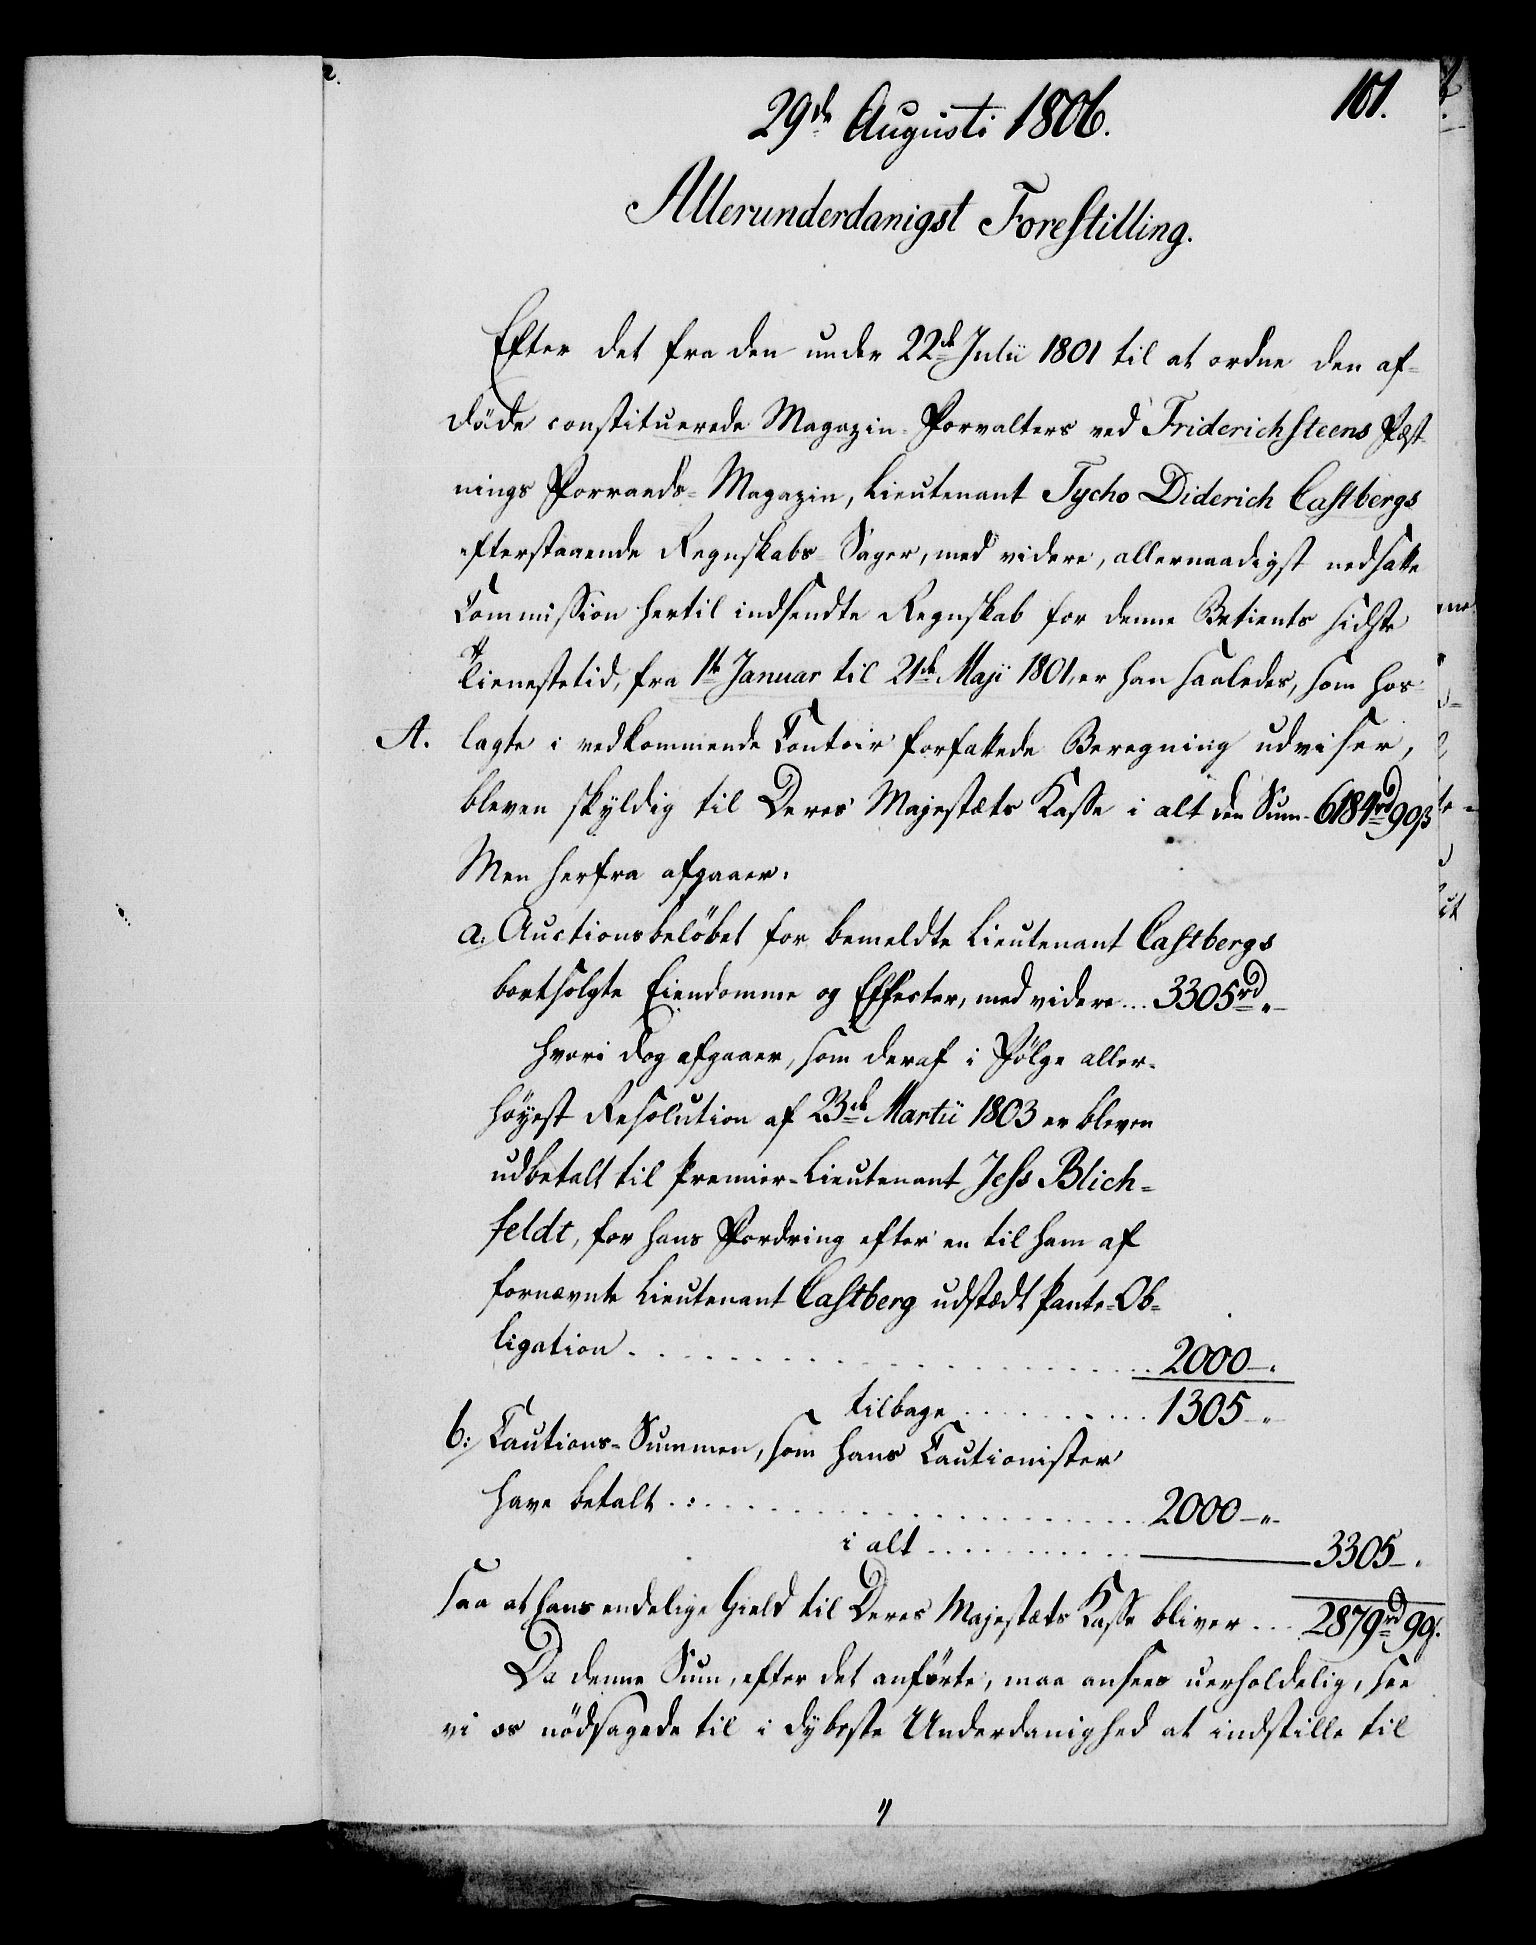 101.
29de Augusti 1806.
Allerunderdanigst Forestilling.
Efter det fra den under 22de Julii 1801 til at ordne den af-
döde constituerede Magazin-Forvalters ved Friderichsteens Fæst-
nings Forraads-Magazin, Lieutenant Tycho Diderich Castbergs
efterstaaende Regnskabs-Sager, med videre, allernaadigst nedsatte
Commission hertil indsendte Regnskab for denne Betients sidste
Tienestetid, fra 1te Januar til 21de Maji 1801, er han saaledes, som hos-
A. lagte i vedkommende Contoir forfattede Beregning udviser,
bleven skÿldig til Deres Majestæts Kasse i alt den Sum- 6184rd 99β
Men herfra afgaaer:
a: Auctionsbelöbet for bemeldte Lieutenant Castbergs
bortsolgte Eiendomme og Effecter, med videre... 3305rd „-
hvori dog afgaaer, som deraf i Fölge aller-
höyest Resolution af 23de Martii 1803 er bleven
udbetalt til Premier-Lieutenant Jess Blich-
feldt, for hans Fordring efter en til ham af
fornævnte Lieutenant Castberg udstædt Pante-Ob-
ligation . . . . . . . . . . . . 2000-„
tilbage . . . . . . . . 1305-„
b: Cautions-Summen, som hans Cautionister
have betalt . . . . . . . . . . . . 2000-„-
i alt . . . . . . . . 3305-„
saa at hans endelige Gield til Deres Majestæts Kasse bliver ... 2879rd 99.
Da denne Sum, efter det anförte, maa ansees uerholdelig, see
vi os nödsagede til i dybeste Underdanighed at indstille til